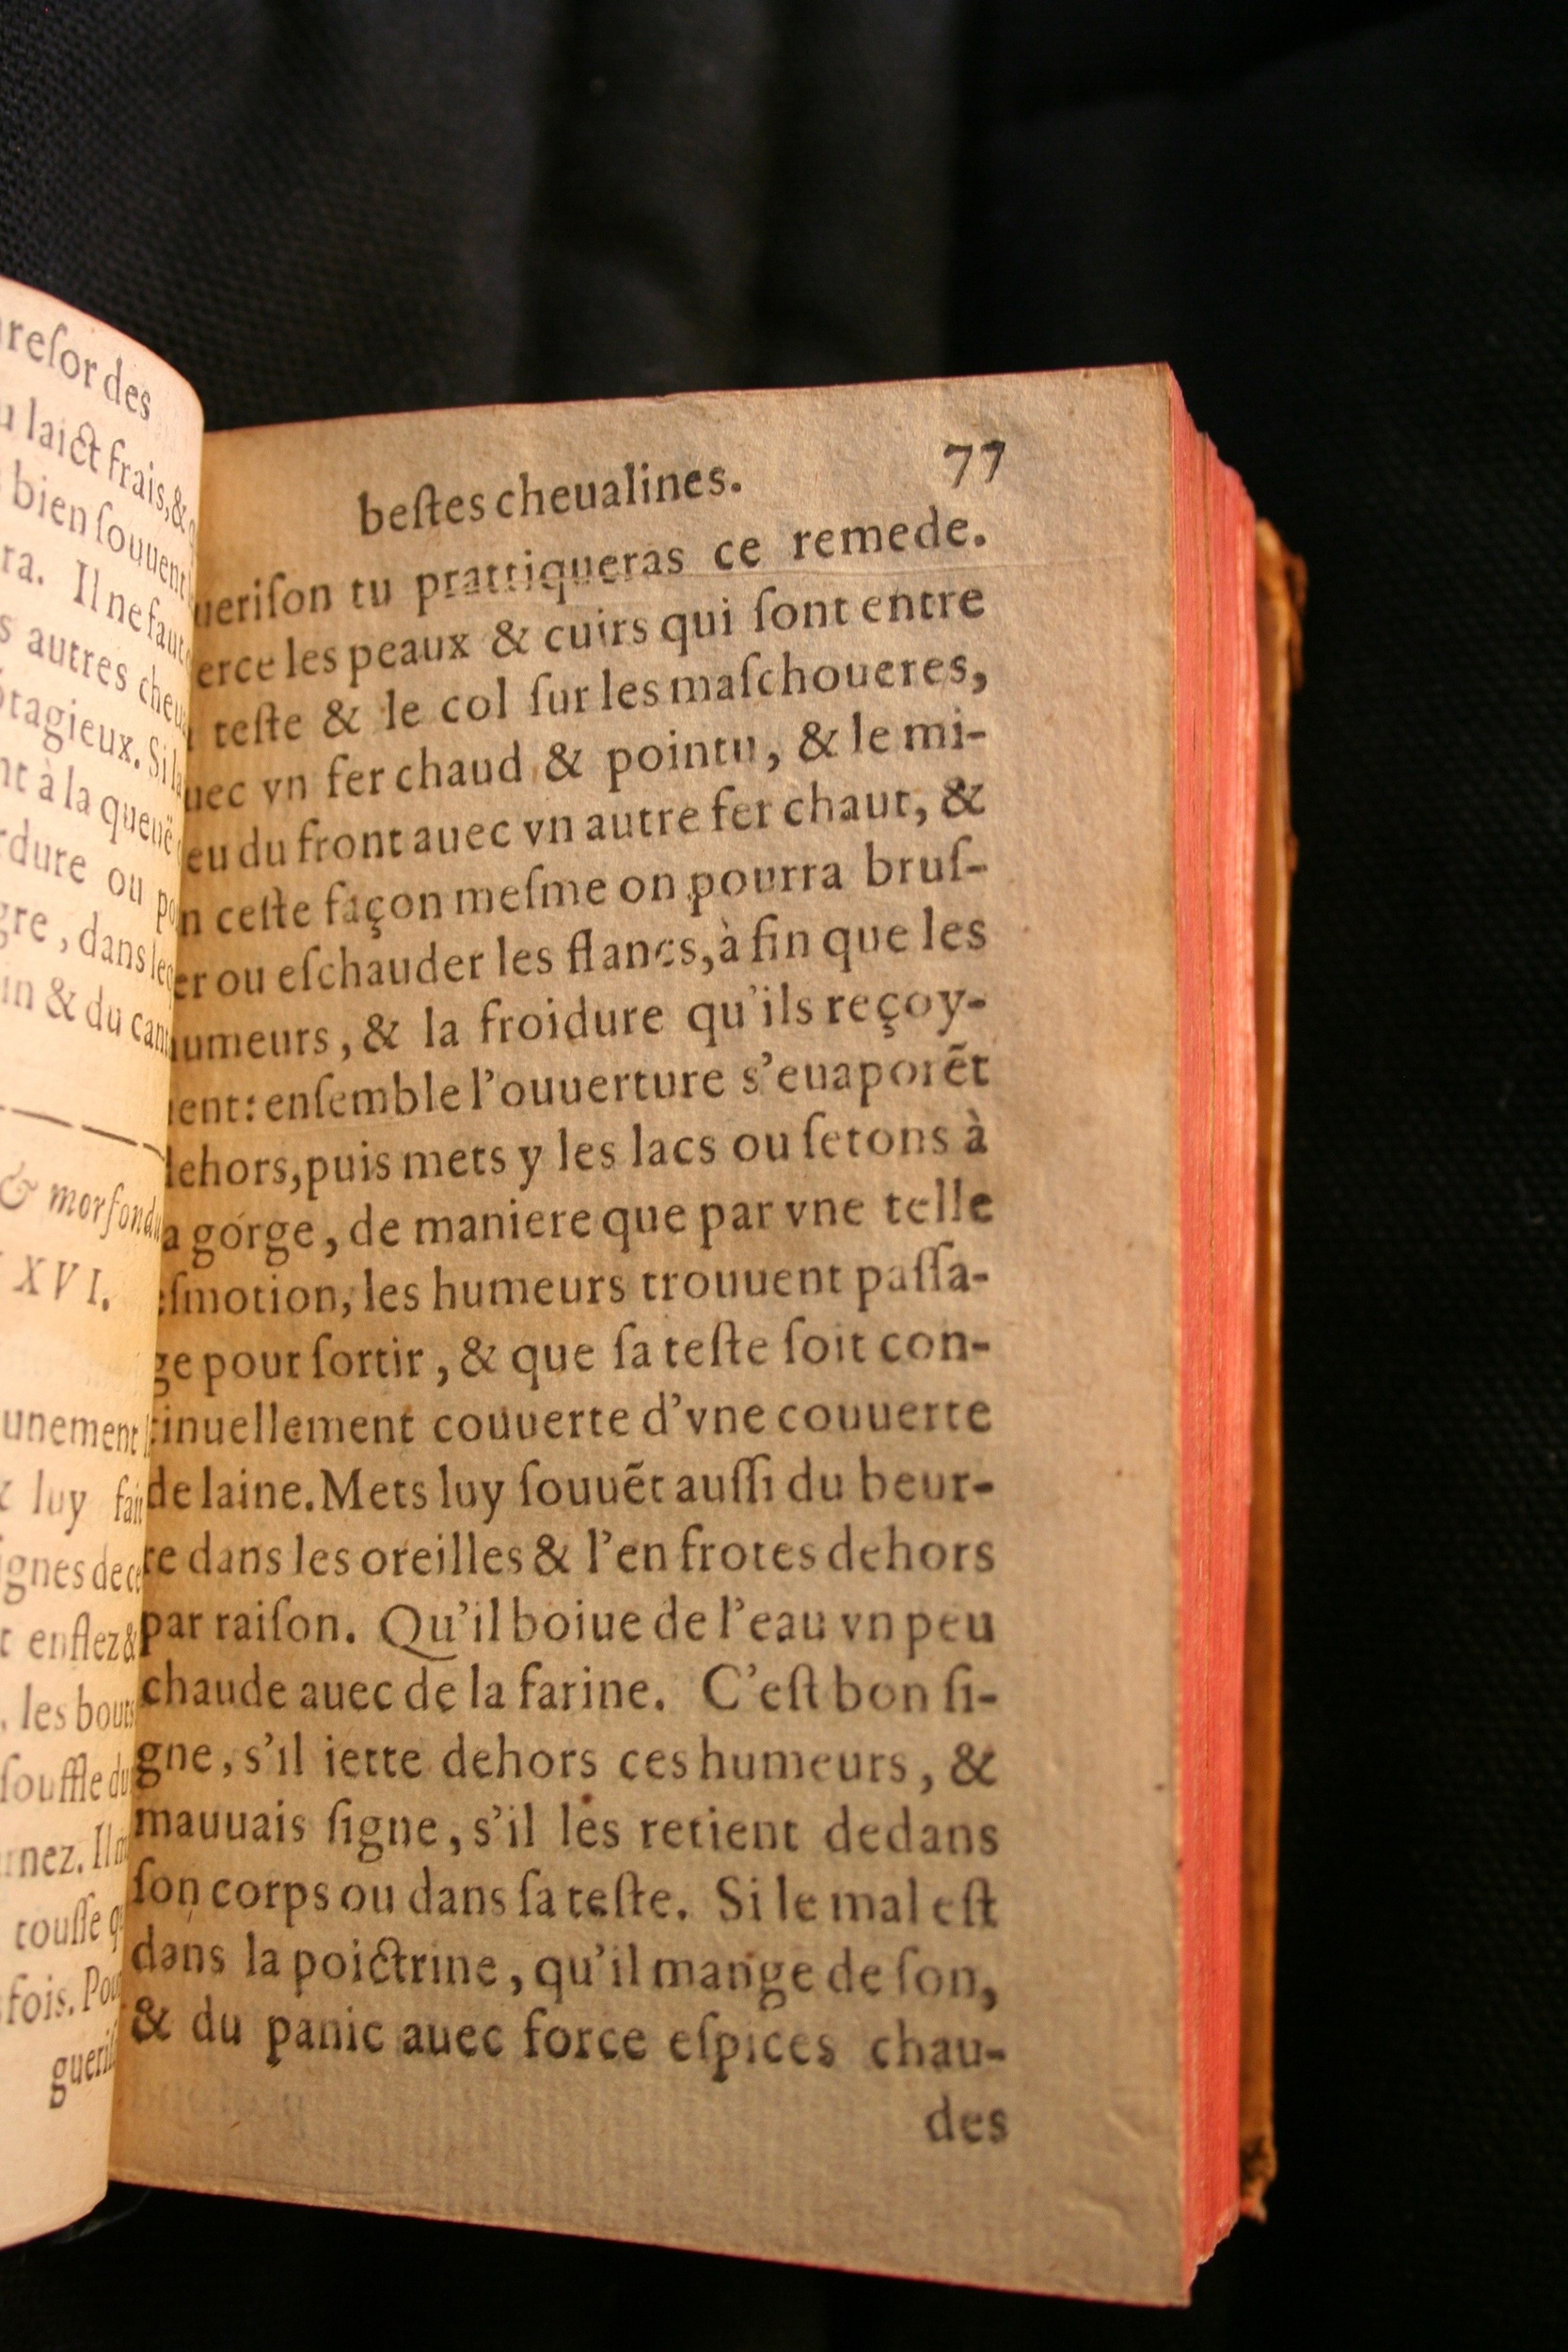 resor des
laict frais, &
bien souuent
ra. Il ne faut
s autres
tagieux. Si
nt à la queuë
rdure ou
gre, dans
in & du
& morfond
XVI.
unement
luy
ignes de
enflez &
, les bouts
souffle du
nez. Il
tousse
fois. Pou
bestes cheualines. 77
uerison tu prattiqueras ce remede.
erce les peaux & cuirs qui sont entre
teste & le col sur les maschoueres,
uec vn fer chaud & pointu, & le mi-
eu du front auec vn autre fer chaut, &
n ceste façon mesme on pourra brus-
er ou eschauder les flancs, à fin que les
umeurs, & la froidure qu'ils reçoy-
ent: ensemble l'ouuerture s'euaporẽt
dehors, puis mets y les lacs ou setons à
a gorge, de maniere que par vne telle
esmotion, les humeurs trouuent passa-
ge pour sortir, & que sa teste soit con-
tinuellement couuerte d'vne couuerte
de laine. Mets luy souuẽt aussi du beur-
re dans les oreilles & l'en frotes dehors
par raison. Qu'il boiue de l'eau vn peu
chaude auec de la farine. C'est bon si-
gne, s'il iette dehors ces humeurs, &
mauuais signe, s'il les retient dedans
son corps ou dans sa teste. Si le mal est
dans la poictrine, qu'il mange de son,
& du panic auec force espices chau-
des